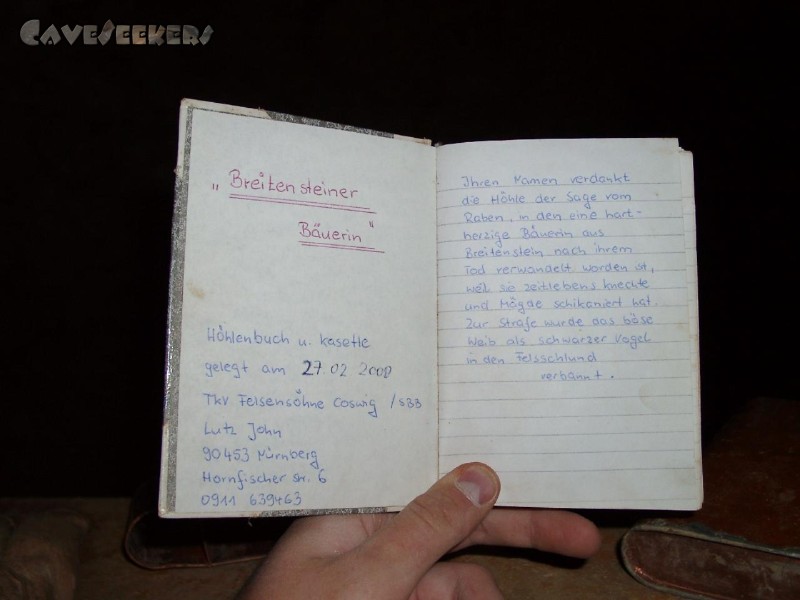 CAVESEEKERS
„Breitensteiner
Bäuerin"
Höhlenbuch u. kasette
gelegt am 27.02 2000
Tkv Felsensöhne Coswig / SBB
Lutz John
90453 Nürnberg
Hornfischer str. 6
0911 639463
Ihren Namen verdankt
die Höhle der Sage vom
Raben, in den eine hart-
herzige Bäuerin aus
Breitenstein nach ihrem
Tod verwandelt worden ist,
weil sie zeitlebens knechte
und Mägde schikaniert hat.
Zur Strafe wurde das böse
Weib als schwarzer Vogel
in den Felsschlund
verbannt.